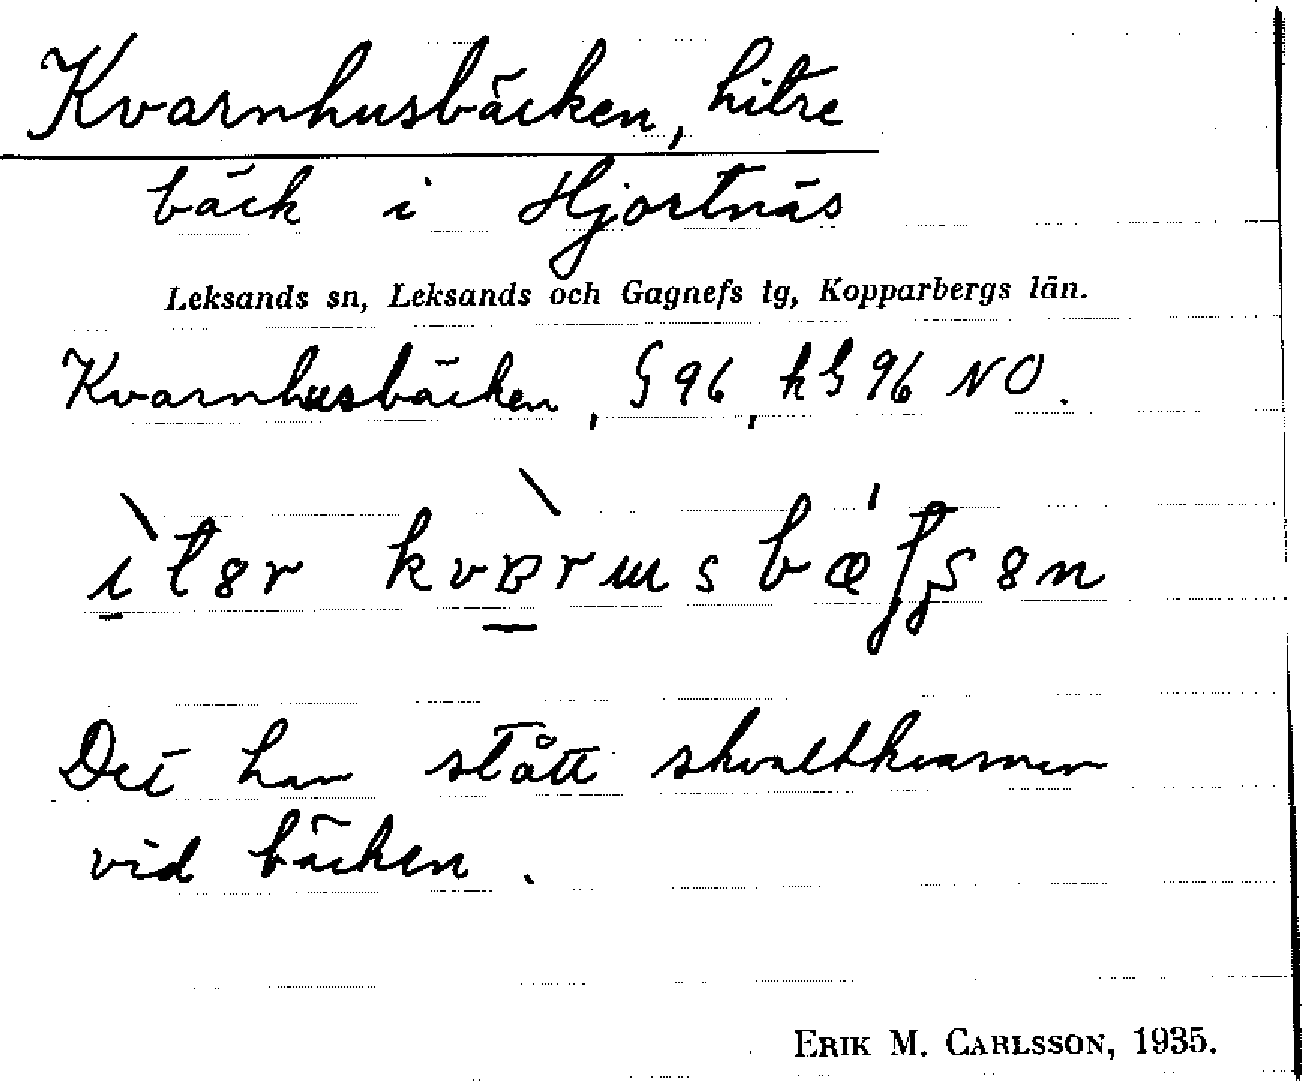 Kvarnhusbäcken, hitre
bäck i Hjortnäs
Leksands sn, Leksands och Gagnefs tg, Kopparbergs län.
Kvarnhusbäcken, G 96, hG 96 NO.
Det har stått skvaltkvarnar
vid bäcken.
ERIK M. CARLSSON, 1935.